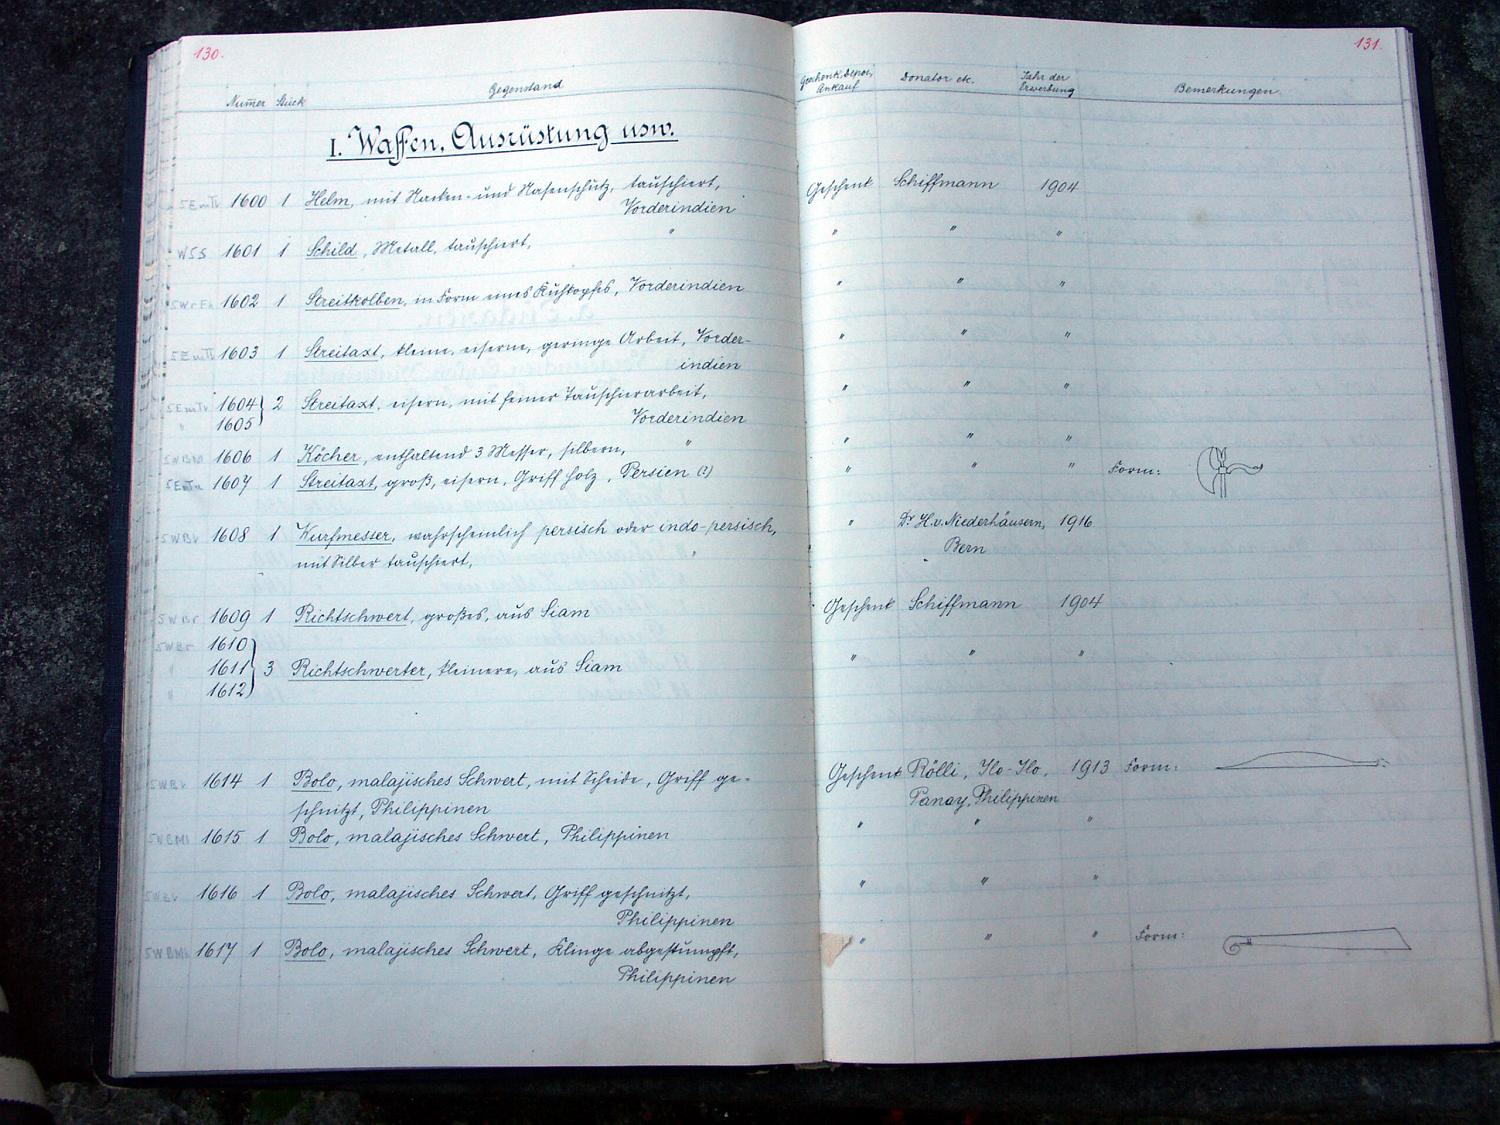 130.
Num̅er Stück Gegenstand
I. Waffen, Ausrüstung usw.
1600 1 Helm, mit Nacken- und Nasenschutz, tauschiert,
Vorderindien
WSS 1601 1 Schild, Metall, tauschiert, "
1602 1 Streitkolben, in Form eines Kuhkopfes, Vorderindien
1603 1 Streitaxt, kleine, eiserne, geringe Arbeit, Vorder-
indien
1604 } 2 Streitaxt, eisern, mit feiner Tauschierarbeit,
" 1605 Vorderindien
1606 1 Köcher, enthaltend 3 Messer, silbern, "
1607 1 Streitaxt, groß, eisern, Griff Holz, Persien (?)
1608 1 Wurfmesser, wahrscheinlich persisch oder indo-persisch,
mit Silber tauschiert, "
1609 1 Richtschwert, großes, aus Siam
1610
" 1611 } 3 Richtschwerter, kleinere, aus Siam
" 1612
1614 1 Bolo, malajisches Schwert, mit Scheide, Griff ge-
schnitzt, Philippinen
1615 1 Bolo, malajisches Schwert, Philippinen
1616 1 Bolo, malajisches Schwert, Griff geschnitzt,
Philippinen
1617 1 Bolo, malajisches Schwert, Klinge abgestumpft,
Philippinen
131.
Geschenk, Depos, Donator etc. Jahr der Bemerkungen.
Ankauf Erwerbung
Geschenk Schiffmann 1904
" " "
" " "
" " "
" " "
" " "
" " " Form:
" Dr H. v. Niederhäusern, 1916
Bern
Geschenk Schiffmann 1904
" " "
Geschenk Rölli, Ilo-Ilo, 1913 Form:
Panay, Philippinen
" " "
" " "
" " " Form: